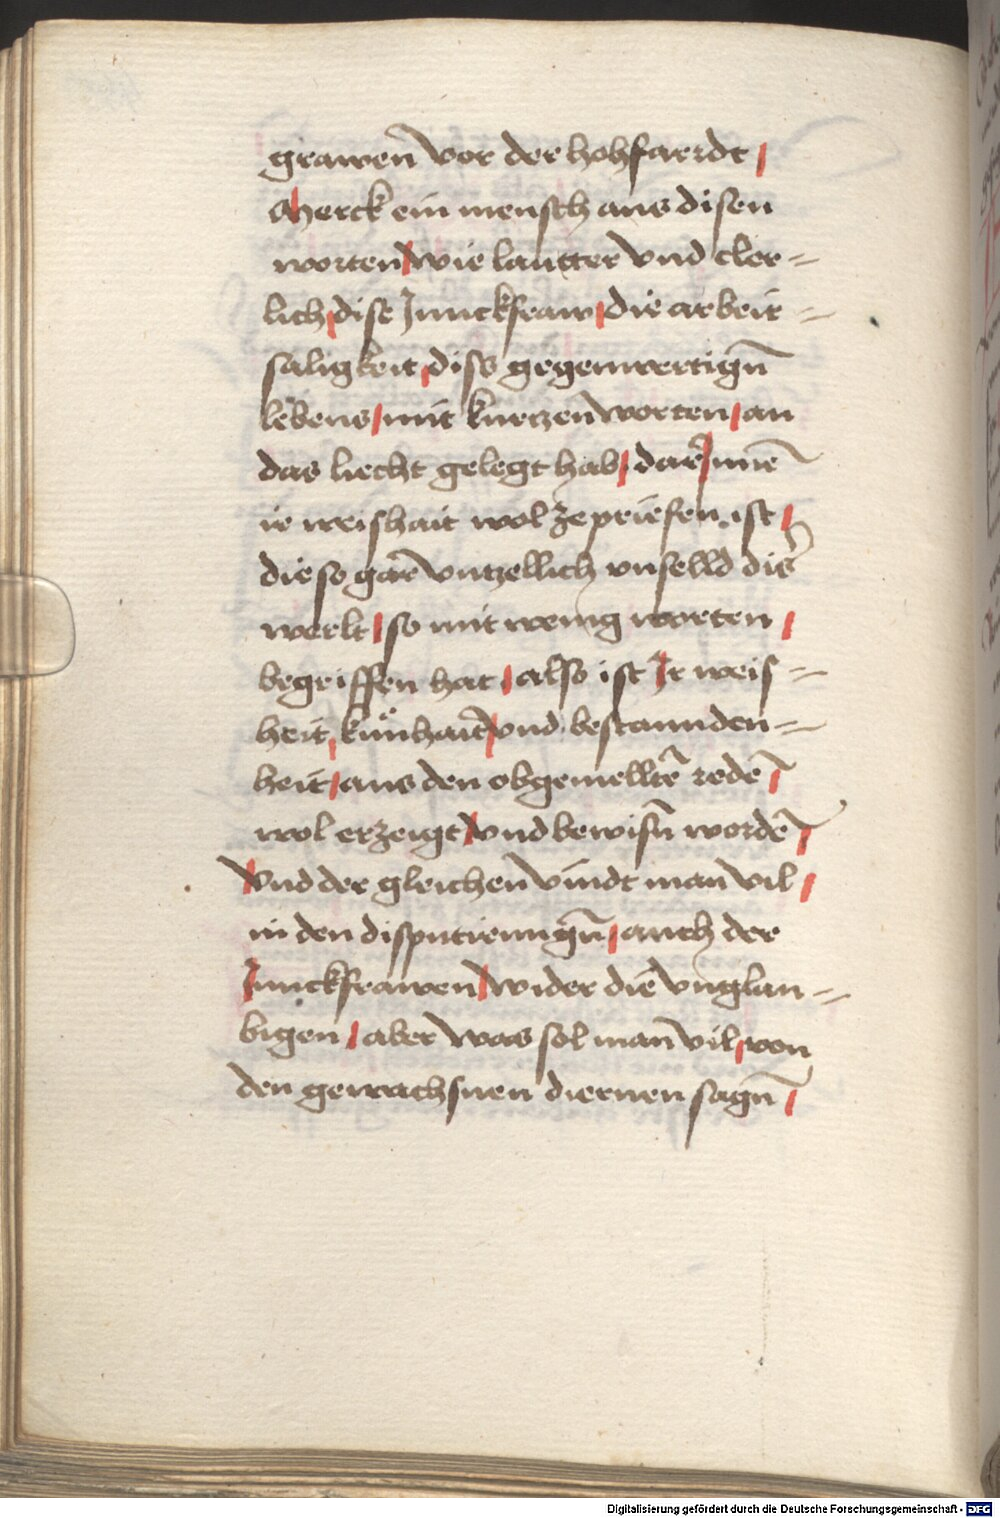 grawen̄ vor der hohfardt /
Merck ein mensch aus disen
worten / wie lautter vnd cler=
lich / dise Junckfraw / die arbeit=
saligkeit / diss gegenwertign̄
lebens / mit kurtzen worten / an
das liecht gelegt hab / dar Jnnē
ir weishait wol ze priefen ist /
die so gar vntzellich vnselld diser
werlt / so mit wenig worten /
begriffen hat / also ist Jr weis=
heit / kůnhait / vnd bestannden=
heit / aus den obgemelltē redē /
wol erzeigt / vnd bewisn̄ wordē /
Vnd der gleichen vindt man vil /
in den disputirungn̄ / auch der
Junckfrawen / wider die vnglau=
bigen / aber was sol man vil / von
den gewachsnen diernen sagn̄ /
Digitalisierung gefördert durch die Deutsche Forschungsgemeinschaft - DFG